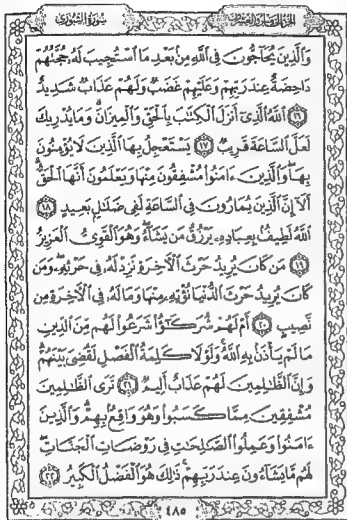 الجزء الخامس والعشرون
سورة الشورى
وَالَّذِينَ يُحَاجُّونَ فِي اللَّهِ مِنْ بَعْدِ مَا اسْتُجِيبَ لَهُ حُجَّتُهُمْ
دَاحِضَةٌ عِندَ رَبِّهِمْ وَعَلَيْهِمْ غَضَبٌ وَلَهُمْ عَذَابٌ شَدِيدٌ
١٦ اللَّهُ الَّذِي أَنزَلَ الْكِتَٰبَ بِالْحَقِّ وَالْمِيزَانَ وَمَا يُدْرِيكَ
لَعَلَّ السَّاعَةَ قَرِيبٌ ١٧ يَسْتَعْجِلُ بِهَا الَّذِينَ لَا يُؤْمِنُونَ
بِهَا وَالَّذِينَ ءَامَنُوا مُشْفِقُونَ مِنْهَا وَيَعْلَمُونَ أَنَّهَا الْحَقُّ
أَلَا إِنَّ الَّذِينَ يُمَارُونَ فِي السَّاعَةِ لَفِي ضَلَٰلٍ بَعِيدٍ ١٨
اللَّهُ لَطِيفٌ بِعِبَادِهِ يَرْزُقُ مَن يَشَاءُ وَهُوَ الْقَوِيُّ الْعَزِيزُ
١٩ مَن كَانَ يُرِيدُ حَرْثَ الْآخِرَةِ نَزِدْ لَهُ فِي حَرْثِهِ وَمَن
كَانَ يُرِيدُ حَرْثَ الدُّنْيَا نُؤْتِهِ مِنْهَا وَمَا لَهُ فِي الْآخِرَةِ مِن
نَّصِيبٍ ٢٠ أَمْ لَهُمْ شُرَكَٰٓؤُا شَرَعُوا لَهُم مِّنَ الدِّينِ
مَا لَمْ يَأْذَن بِهِ اللَّهُ وَلَوْلَا كَلِمَةُ الْفَصْلِ لَقُضِيَ بَيْنَهُمْ
وَإِنَّ الظَّٰلِمِينَ لَهُمْ عَذَابٌ أَلِيمٌ ٢١ تَرَى الظَّٰلِمِينَ
مُشْفِقِينَ مِمَّا كَسَبُوا وَهُوَ وَاقِعٌ بِهِمْ وَالَّذِينَ
ءَامَنُوا وَعَمِلُوا الصَّٰلِحَٰتِ فِي رَوْضَاتِ الْجَنَّاتِ
لَهُم مَّا يَشَاءُونَ عِندَ رَبِّهِمْ ذَٰلِكَ هُوَ الْفَضْلُ الْكَبِيرُ ٢٢
٤٨٥